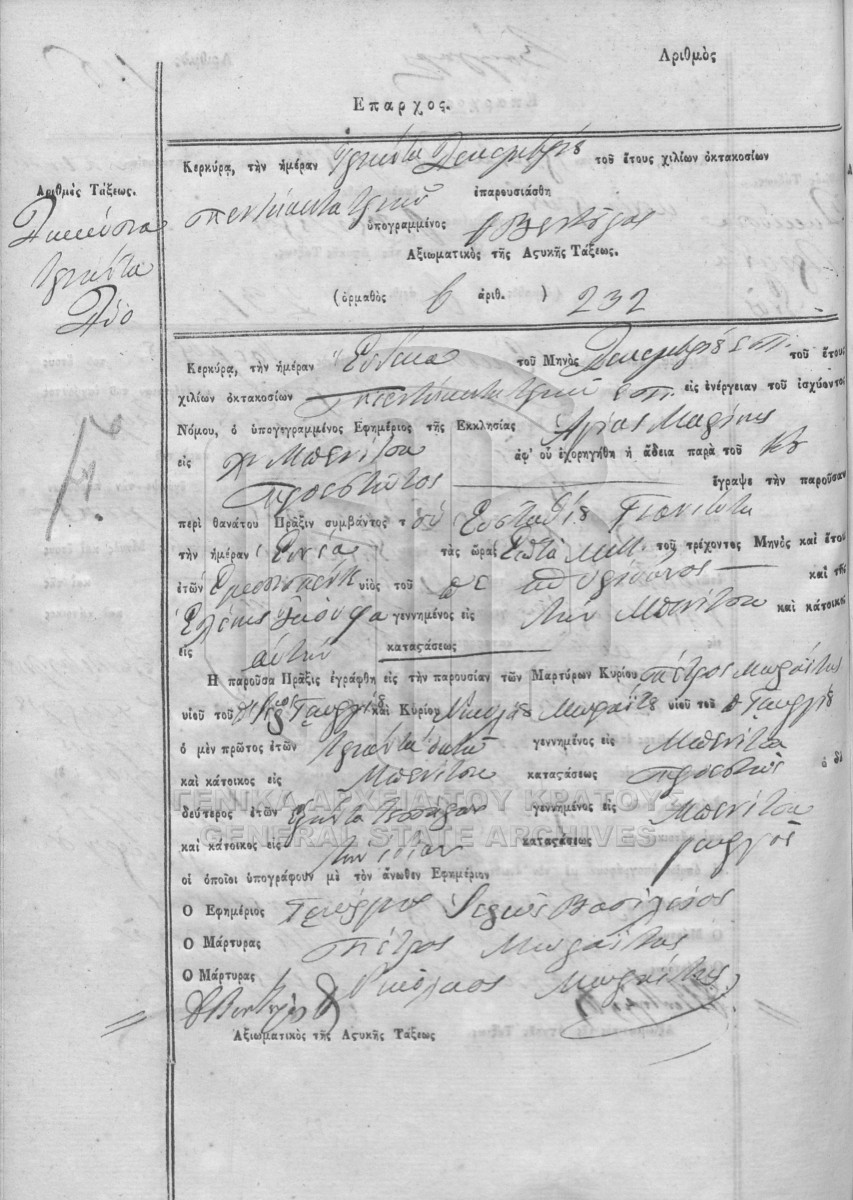 Αριθμὸς
Επαρχος.
Κερκύρα, τὴν ἡμέραν τριάντα Δεκεμβρίου τοῦ ἔτους χιλίων ὀκτακοσίων
πεντήκοντα τριῶν ἐπαρουσιάσθη
ὑπογραμμένος
Αξιωματικὸς τῆς Αςυκῆς Τάξεως.
(ὁρμαθὸς 6 ἀριθ. ) 232
Αριθμὸς Τάξεως.
Διακόσια
τριάντα
δύο
Κερκύρα, τὴν ἡμέραν Ένδεκα τοῦ Μηνὸς Δεκεμβρίου ε.π. τοῦ ἔτους
χιλίων ὀκτακοσίων πεντήκοντα τριῶν ε.π. εἰς ἐνέργειαν τοῦ ἰσχύοντος
Νόμου, ὁ ὑπογεγραμμένος Ἐφημέριος τῆς Εκκλησίας Αγίας Μαρίνης
εἰς Μπενίτζα ἀφ' οὗ ἐχορηγήθη ἡ ἄδεια παρὰ τοῦ
Προεστῶτος ἔγραψε τὴν παροῦσαν
περὶ θανάτου Πρᾶξιν συμβάντος τοῦ Ευσταθίου
τὴν ἡμέραν Εννέα τὰς ὥρας Επτὰ τοῦ τρέχοντος Μηνὸς καὶ ἔτου
ἐτῶν υἱὸς τοῦ καὶ τῆς
Ελένης γεννημένος εἰς τὴν Μπενίτζα καὶ κάτοικος
εἰς αὐτὴν καταςάσεως
Η παροῦσα Πρᾶξις ἐγράφθη εἰς τὴν παρουσίαν τῶν Μαρτύρων Κυρίου Πέτρος Μωραΐτης
υἱοῦ τοῦ Γεωργίου καὶ Κυρίου Νικολάου Μωραΐτη υἱοῦ τοῦ Γεωργίου
ὁ μὲν πρῶτος ἐτῶν τριάντα οκτὼ γεννημένος εἰς Μπενίτζα
καὶ κάτοικος εἰς Μπενίτζα καταςάσεως προεστὼς ὁ δὲ
δεύτερος ἐτῶν γεννημένος εἰς Μπενίτζα
καὶ κάτοικος εἰς τὴν ἰδίαν καταςάσεως γεωργὸς
οἱ ὁποῖοι ὑπογράφουν μὲ τὸν ἄνωθεν Εφημέριον
Ο Εφημέριος Γεώργιος Ιερεὺς
Ο Μάρτυρας Πέτρος Μωραΐτης
Ο Μάρτυρας Νικόλαος Μωραΐτης
Αξιωματικὸς τῆς Αςυκῆς Τάξεως
ΓΕΝΙΚΑ ΑΡΧΕΙΑ ΤΟΥ ΚΡΑΤΟΥΣ
GENERAL STATE ARCHIVES